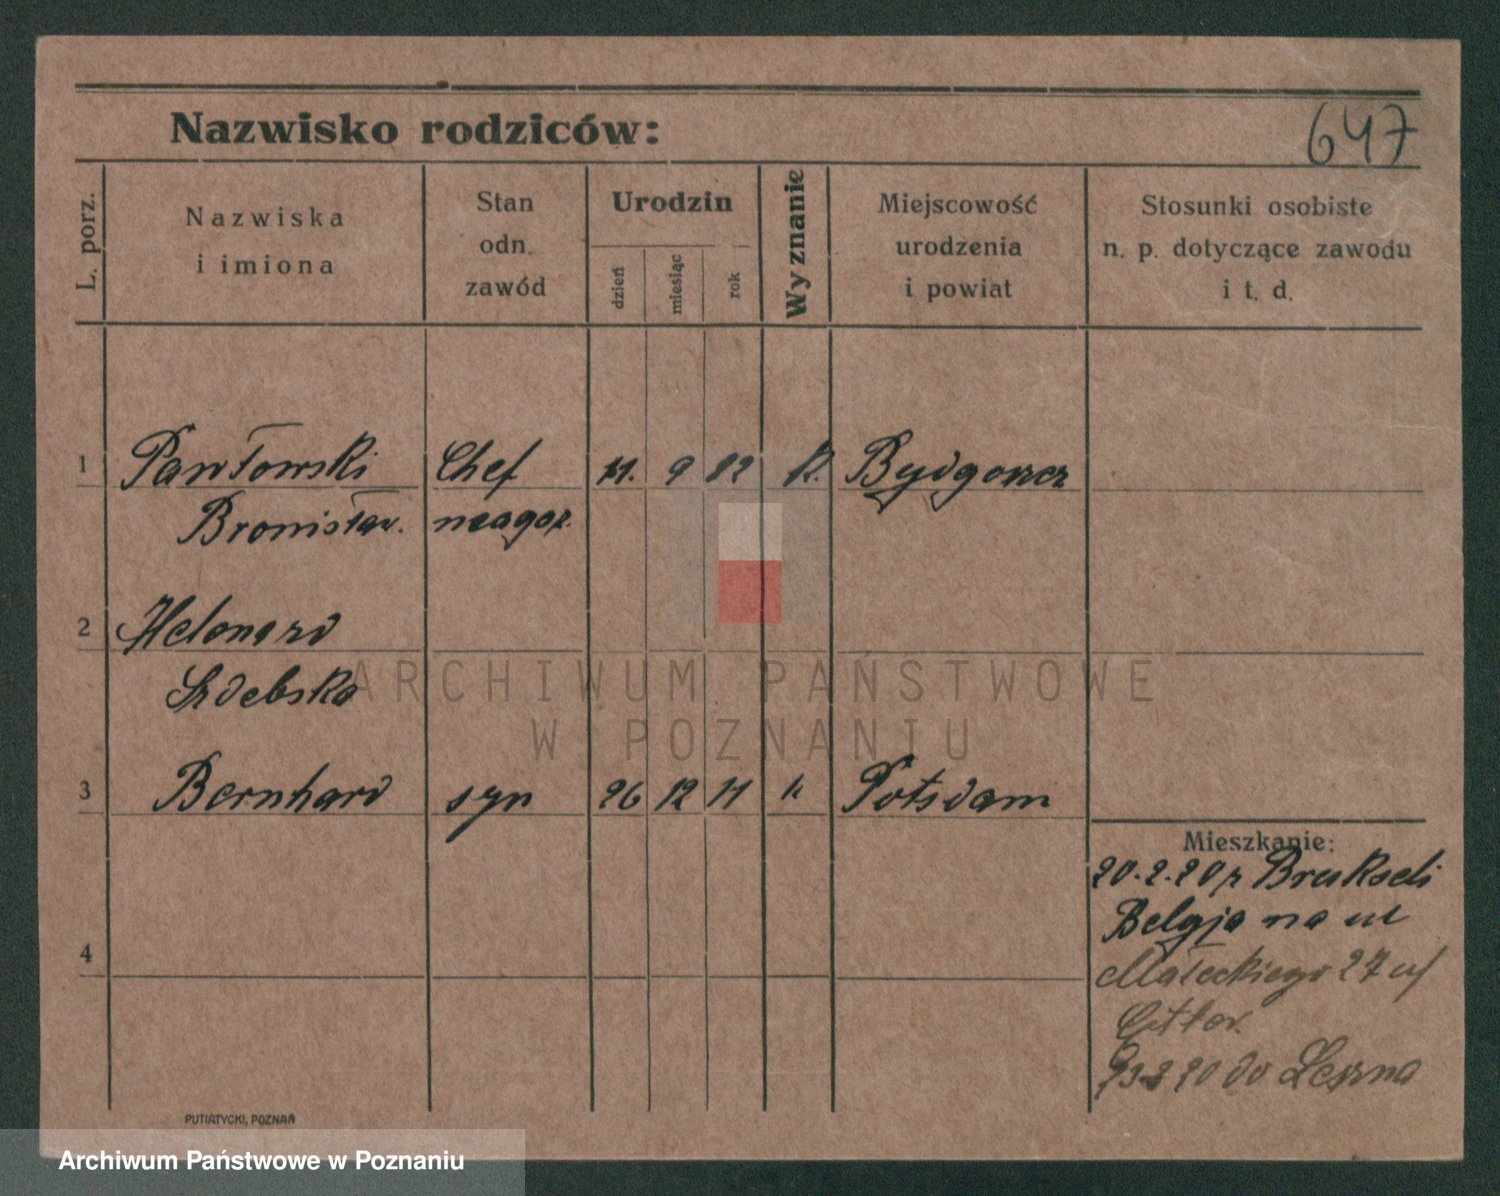 647
Nazwisko rodziców:
L. porz.
Nazwiska
i imiona
Stan
odn.
zawód
Urodzin
dzień
miesiąc
rok
Wyznanie
Miejscowość
urodzenia
i powiat
Stosunki osobiste
n. p. dotyczące zawodu
i t. d.
1 Pawłowski Chef 11. 9 82 k. Bydgoszcz
Bronisław. magaz.
2
3 Bernhard syn 26 12 11 " Potsdam
4
Mieszkanie:
20.2.20 z Brukseli
Belgja na ul
Małeckiego 27 u/
20 do Leszna
PUTIATYCKI, POZNAŃ
ARCHIWUM PAŃSTWOWE
W POZNANIU
Archiwum Państwowe w Poznaniu